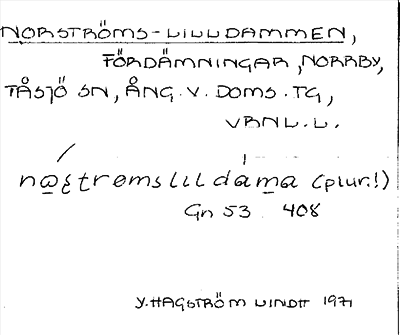 NORSTRÖMS-LILLDAMMEN,
FÖRDÄMNINGAR, NORRBY,
TÅSJÖ SN, ÅNG. V. DOMS. TG,
VRNL. L.
(plur.!)
Gn 53 408
Y. HAGSTRÖM LINDH 1971